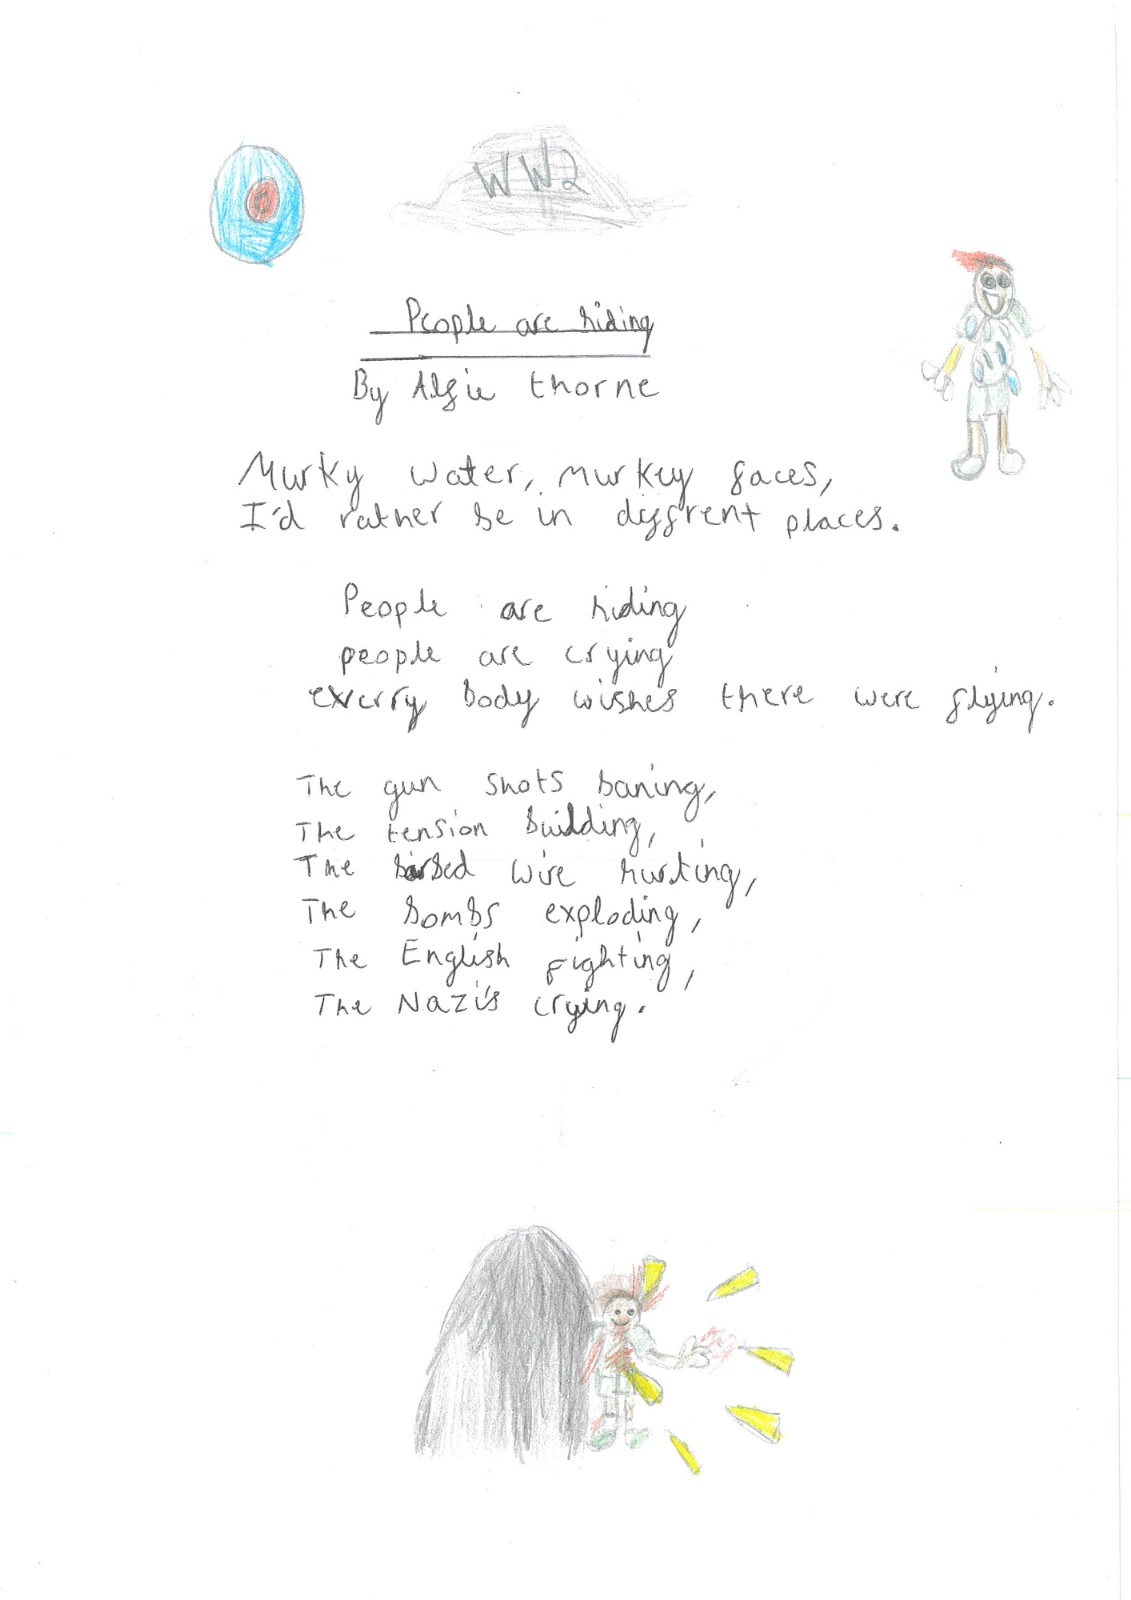 WW2
People are hiding
By Alfie thorne
Murky water, murkey faces,
I'd rather be in diffrent places.
People are hiding
people are crying
everry body wishes there were flying.
The gun shots baning,
The tension building,
The barbed wire hurting,
The bombs exploding,
The English fighting,
The Nazi's crying.